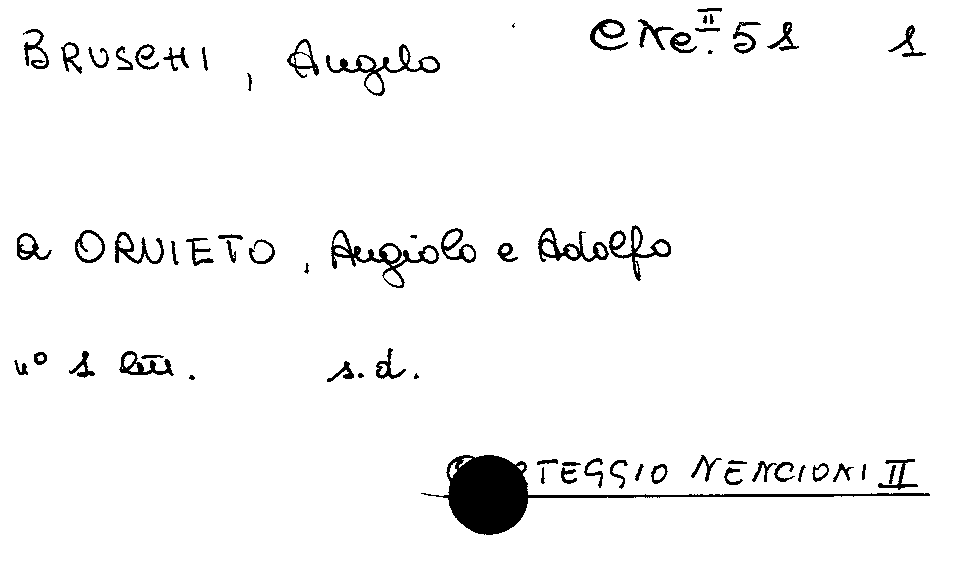 BRUSCHI, Angelo C Ne. II 51 1
a ORVIETO, Angiolo e Adolfo
n° 1 lett. s.d.
NENCIONI II